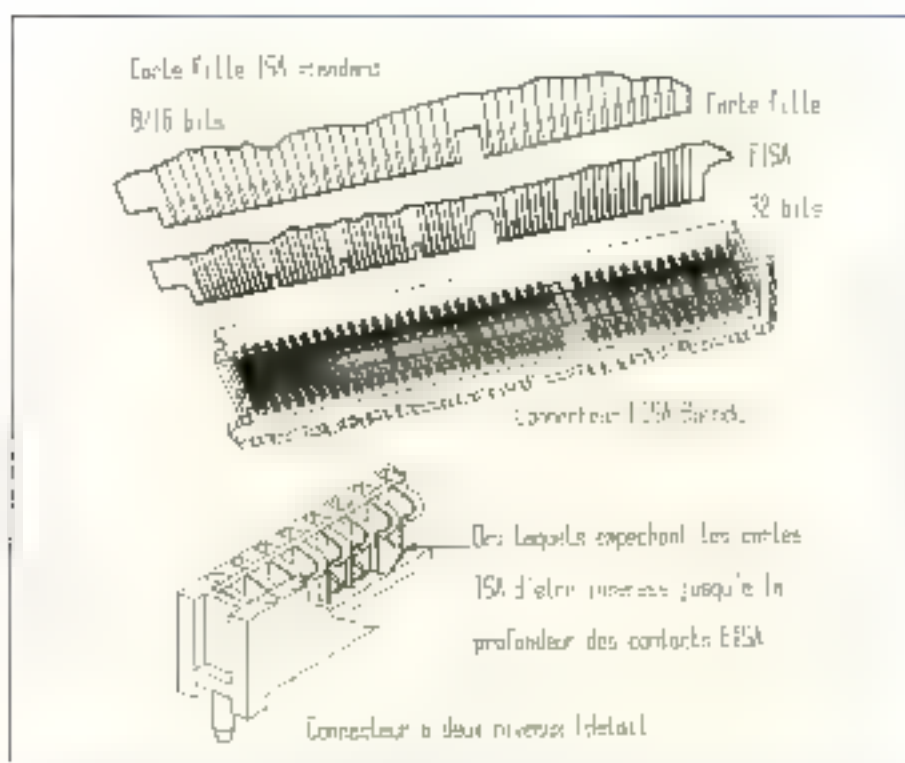 Carte fille ISA standard
8/16 bits
Carte fille
EISA
32 bits
Connecteur EISA
Des taquets empechant les cartes
ISA d'etre jusqu'a la
profondeur des contacts EISA
Connecteur a deux niveaux (detail